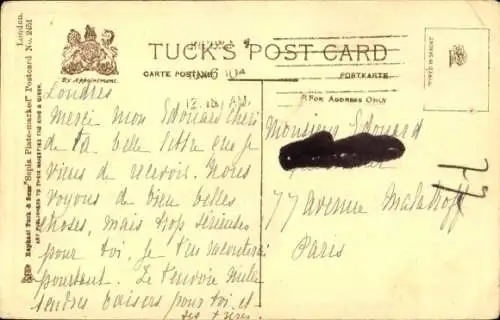 TUCK'S POST CARD
By Appointment.
CARTE POSTALE
POSTKARTE
12.15 AM
FOR ADDRESS ONLY
Raphael Tuck & Sons' "Sepia Plate-marked" Postcard No. 2451 London.
ART PUBLISHERS TO THEIR MAJESTIES THE KING & QUEEN.
Londres
Merci mon Edouard chéri
de ta belle lettre que je
viens de recevoir. Nous
voyons de bien belles
choses, mais trop sérieuses
pour toi, je t'en raconterai
pourtant. Je t'envoie mille
tendres baisers pour toi et
tes frères.
Monsieur Edouard
77 avenue Malakoff
Paris